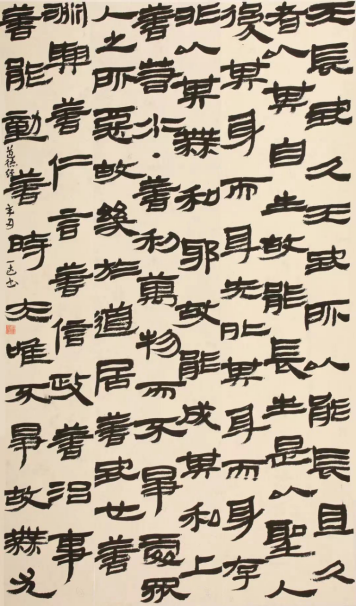 天長地久天地所以能長且久
者以其自生故能長生是以聖人
後其身而身先外其身而身存
非以其無私邪故能成其私上
善若水善利萬物而不爭處眾
人之所惡故幾於道居善地心善
淵與善仁言善信政善治事
善能動善時夫唯不爭故無尤
道德經 辛丑